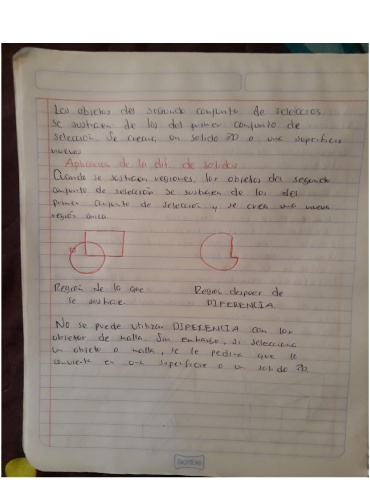 Los objetos del segundo conjunto de selección
se sustraen de los del primer conjunto de
selección. Se crearan un solido 3D o una superficie
nuevos
Aplicación de la dif. de solidos
Cuando se sustraen regiones, los objetos del segundo
conjunto de selección se sustraen de los del
primer conjunto de selección y se crea una nueva
región única.
Región de la que
se sustrae.
Región despues de
DIFERENCIA
No se puede utilizar DIFERENCIA con los
objetos de malla. Sin embargo, si selecciona
un objeto a malla, se le pedira que lo
convierta en una superficie o un solido 3D.
Scribe